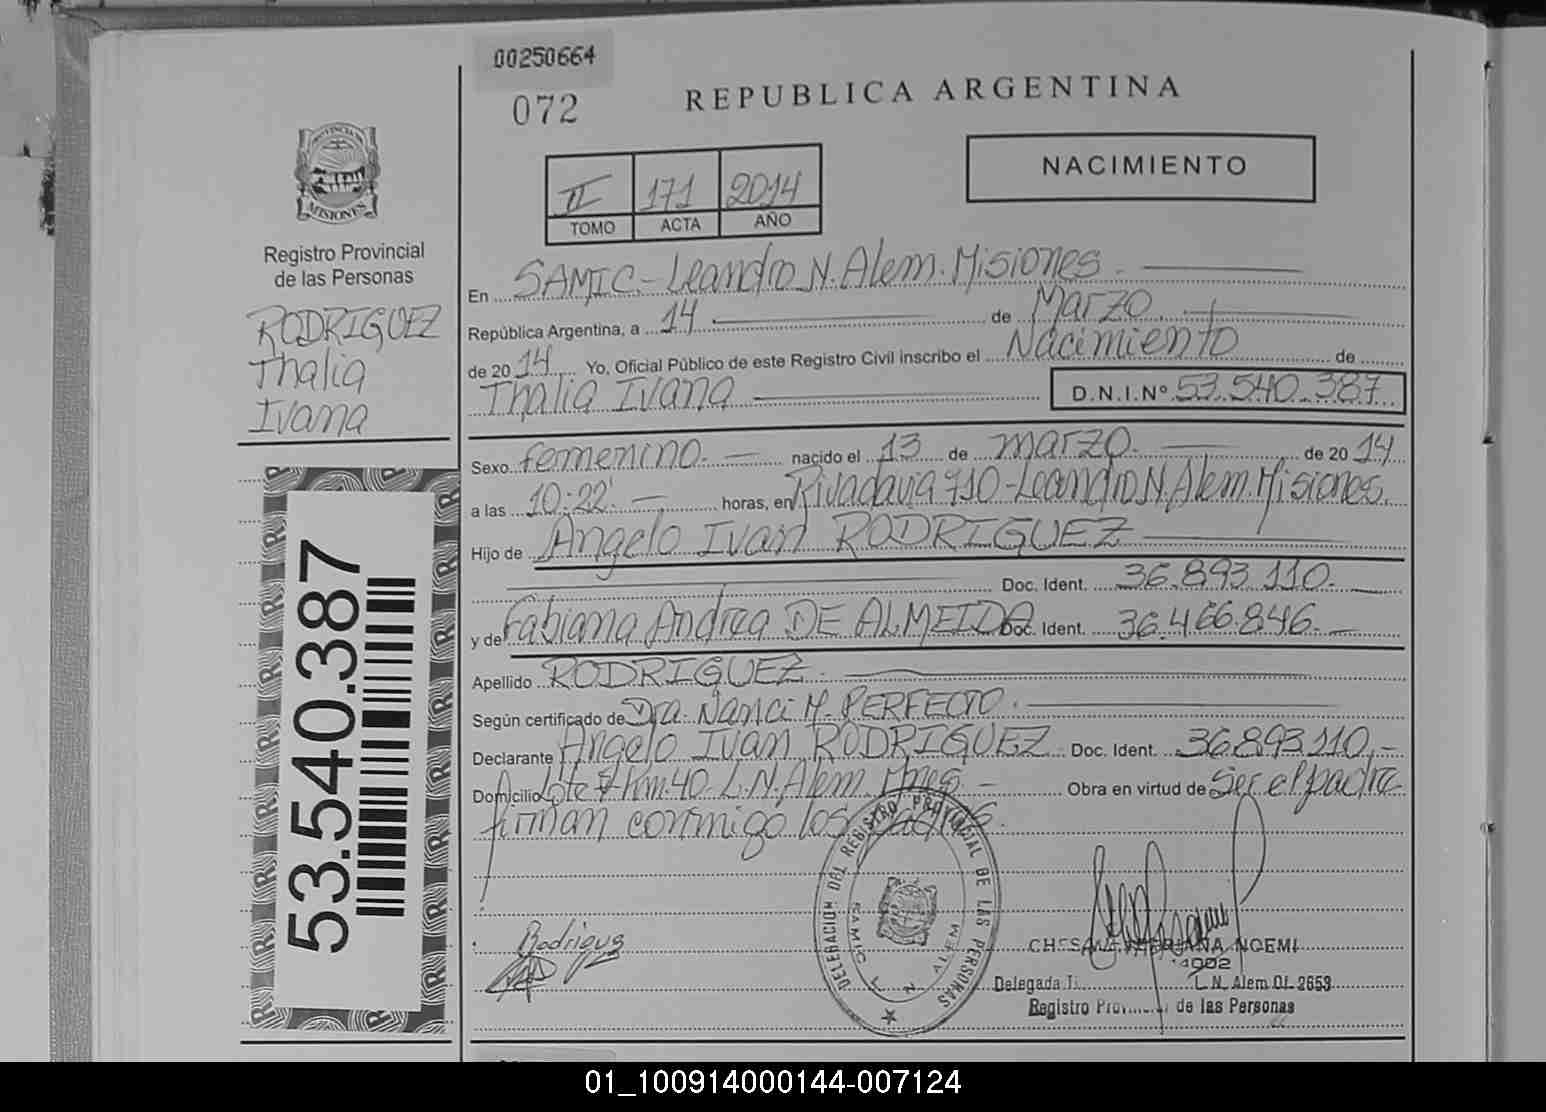 00250664
072
REPUBLICA ARGENTINA
NACIMIENTO
II 171 2014
TOMO ACTA AÑO
PROVINCIA DE
MISIONES
Registro Provincial
de las Personas
RODRIGUEZ
Thalia
Ivana
53.540.387
En SAMIC - Leandro N. Alem. Misiones.
República Argentina, a 14 de Marzo
de 2014 Yo, Oficial Público de este Registro Civil inscribo el Nacimiento de
Thalia Ivana D.N.I.Nº 53.540.387
Sexo femenino. nacido el 13 de marzo. de 2014
a las 10:22' horas, en Rivadavia 710 - Leandro N. Alem. Misiones.
Hijo de Angelo Ivan RODRIGUEZ
Doc. Ident. 36.893.110.
y de Fabiana Andrea DE ALMEIDA Doc. Ident. 36.466.846.
Apellido RODRIGUEZ.
Según certificado de Dra. Nanci M. PERFECTO.
Declarante Angelo Ivan RODRIGUEZ Doc. Ident. 36.893.110.-
Domicilio Lote 7 Km. 40 - L.N. Alem Mnes - Obra en virtud de Ser el padre
firman conmigo los padres.
DELEGACION DEL REGISTRO PROVINCIAL DE LAS PERSONAS
SAMIC L. N. ALEM
Rodriguez
NOEMI
Delegada
L.N. Alem Of. 2653
Registro de las Personas
01_100914000144-007124